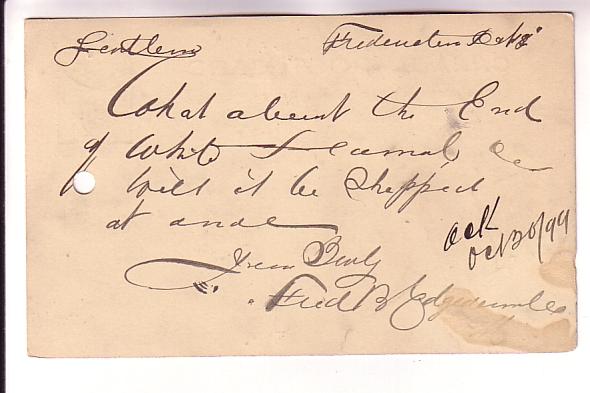 Gentlemen Fredericton
What about the End
of White
Will it be Shipped
at once
Yours Truly
Fred B Edgecombe
ack
Oct 20/99